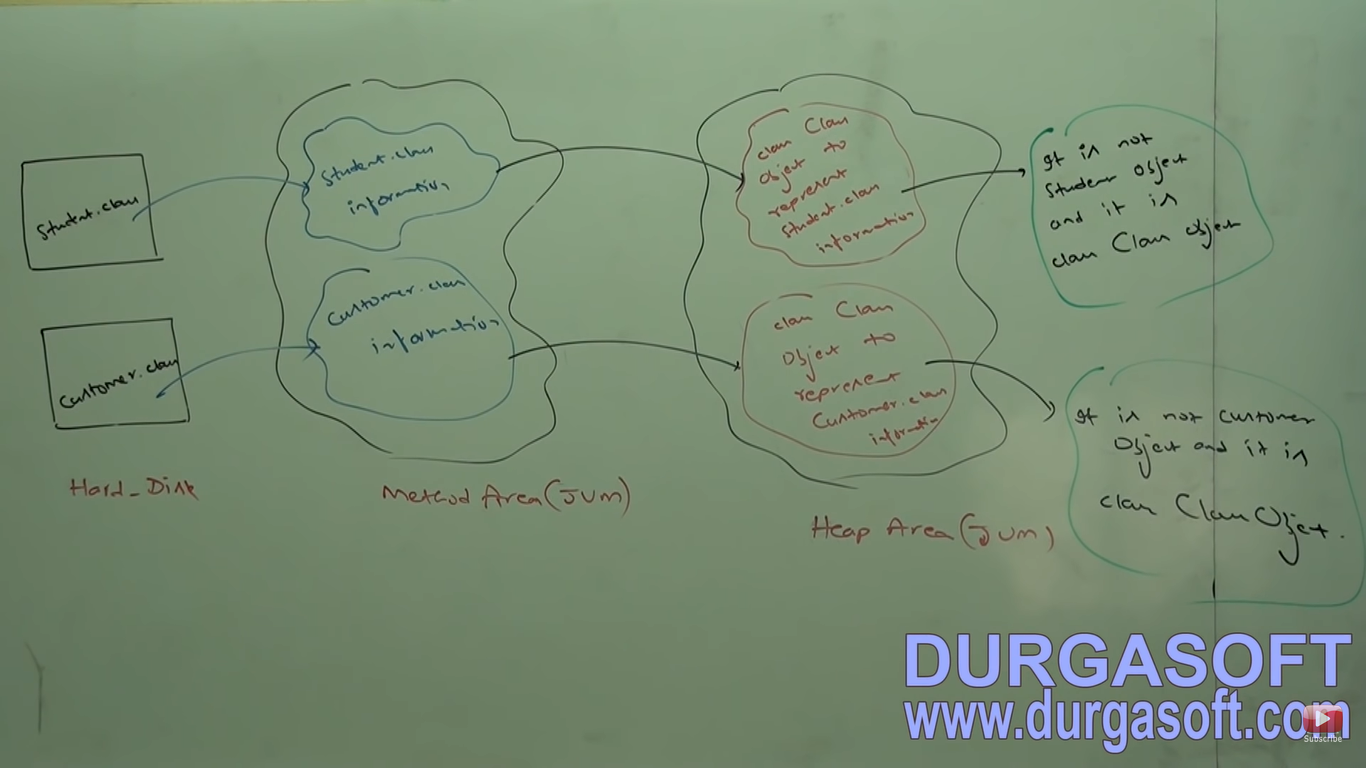 Student.class
Customer.class
Hard_Disk
Student.class
information
Customer.class
information
Method Area(JVM)
class Class
Object to
represent
Student.class
information
class Class
Object to
represent
Customer.class
information
Heap Area(JVM)
It is not
Student Object
and it is
class Class object
It is not customer
Object and it is
class Class Object.
DURGASOFT
www.durgasoft.com
Subscribe